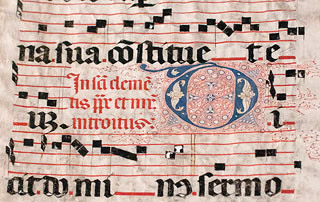 na sua. cõstitue te
In scī clemē
tis pp̄e et mr̄.
introitus.
us. D i
cit do mi nꝰ. sermo